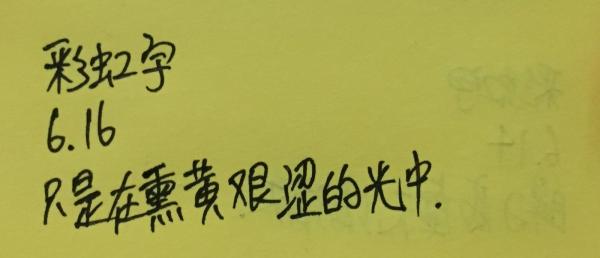 彩虹字
6.16
只是在熏黄艰涩的光中.